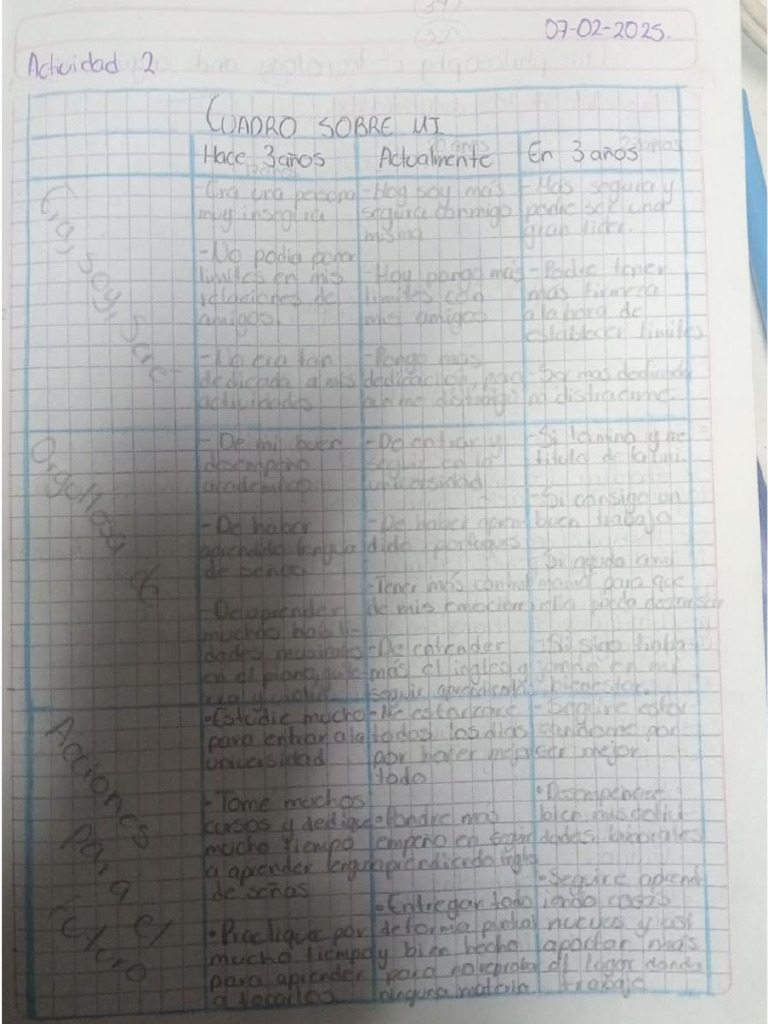 07-02-2025.
Actividad 2
CUADRO SOBRE MI
Hace 3 años
Actualmente
En 3 años
Era, soy, Seré
-Era una persona
muy insegura
-No podia poner
limites en mis
relaciones de
amigos.
-No era tan
dedicada a mis
actividades
-Hoy soy más
segura conmigo
misma
-Hoy pongo más
limites con
mis amigos
-Pongo más
dedicación, pero
aun me distraigo
-Más segura y
podre ser una
gran lider.
-Podre tener
más firmeza
a la hora de
establecer limites
-Ser mas dedicada
ni distraerme.
Orgullosa de
-De mi buen
desempeño
académico
-De haber
aprendido lengua
de senas
-De aprender
muchas habili-
dades musicales
en el piano,
-De entrar y
seguir en la
universidad
-De haber apren
dido portugues
-Tener más control
de mis emocion
-De entender
más el ingles y
seguir aprendiendo
-Si termino y me
titulo de la uni.
-Si consigo un
buen trabajo
-Si ayudo a mi
mamá para que
ella pueda descansar
-Si sigo traba
jando en mi
bienestar.
Acciones para el futuro
•Estudie mucho
para entrar a la
universidad
-Tome muchos
cursos y dedique
mucho tiempo
a aprender lengua
de señas
•Practique por
mucho tiempo
para aprender
a tocarlos
-Me esforzare
todos los dias
por hacer mejor
todo
•Pondre más
empeño en seguir
aprendiendo ingles
•Entregar todo
de forma puntual
y bien hecho
para no reprobar
ninguna materia
-Seguire esfor
zandome por
ser mejor.
•Desempeñare
bien mis activi
dades laborales
-Seguire aprend
iendo cosas
nuevas y asi
aportar más
al lugar donde
trabaje